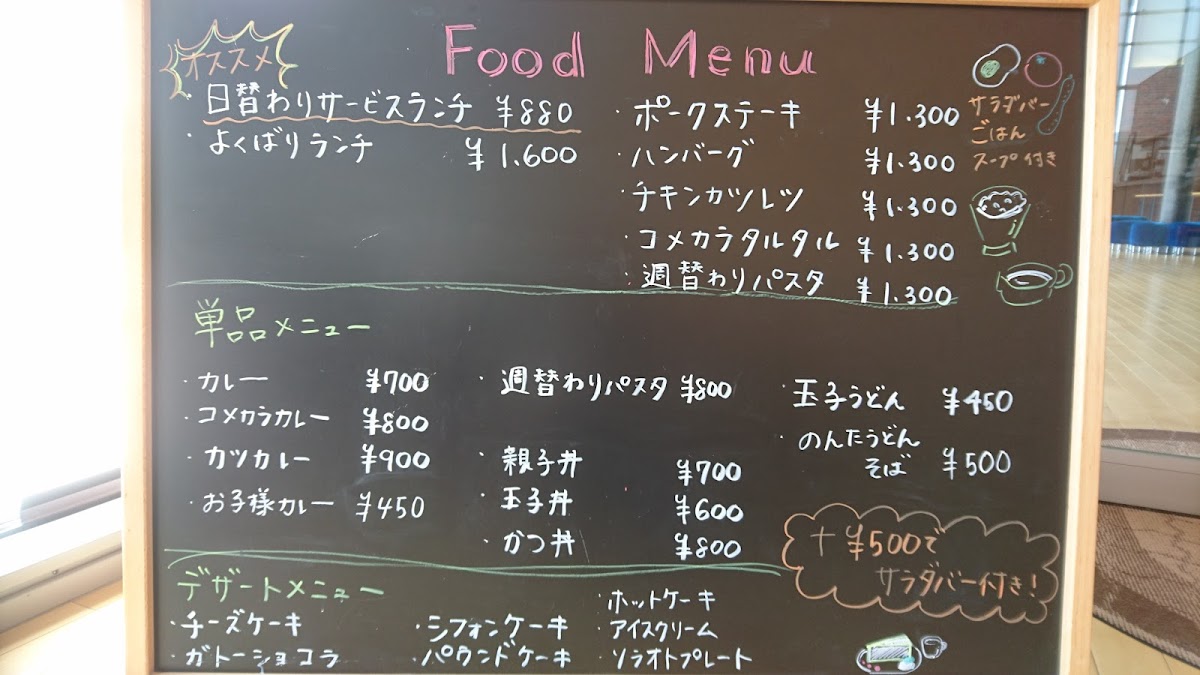 Food Menu
オススメ
・日替わりサービスランチ ¥880
・よくばりランチ ¥1.600
・ポークステーキ ¥1.300
・ハンバーグ ¥1.300
・チキンカツレツ ¥1.300
・コメカラタルタル ¥1.300
・週替わりパスタ ¥1.300
サラダバー
ごはん
スープ付き
単品メニュー
・カレー ¥700
・コメカラカレー ¥800
・カツカレー ¥900
・お子様カレー ¥450
・週替わりパスタ ¥800
・親子丼 ¥700
・玉子丼 ¥600
・かつ丼 ¥800
・玉子うどん ¥450
・のんたうどん
そば ¥500
+¥500で
サラダバー付き!
デザートメニュー
・チーズケーキ
・ガトーショコラ
・シフォンケーキ
・パウンドケーキ
・ホットケーキ
・アイスクリーム
・ソラオトプレート